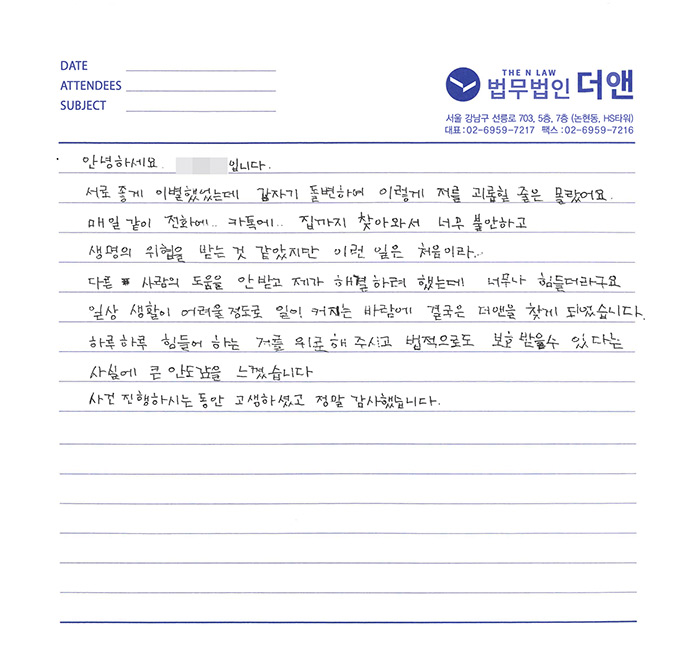 DATE
ATTENDEES
SUBJECT
THE N LAW
법무법인 더앤
서울 강남구 선릉로 703, 5층, 7층 (논현동, HS타워)
대표:02-6959-7217 팩스:02-6959-7216
안녕하세요. 입니다.
서로 좋게 이별했었는데 갑자기 돌변하여 이렇게 저를 괴롭힐 줄은 몰랐어요.
매일 같이 전화에.. 카톡에.. 집까지 찾아와서 너무 불안하고
생명의 위협을 받는 것 같았지만 이런 일은 처음이라..
다른 사람의 도움을 안 받고 제가 해결하려 했는데! 너무나 힘들더라구요
일상 생활이 어려울 정도로 일이 커지는 바람에 결국은 더앤을 찾게 되었습니다.
하루하루 힘들어 하는 저를 위로 해 주시고 법적으로도 보호 받을수 있다는
사실에 큰 안도감을 느꼈습니다
사건 진행하시는 동안 고생하셨고 정말 감사했습니다.